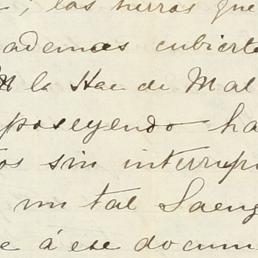 ; las tierras que
ademas cubierto
la Hac de Mal
poseyendo ha
tos sin interrup
un tal Saenz
e á ese docum